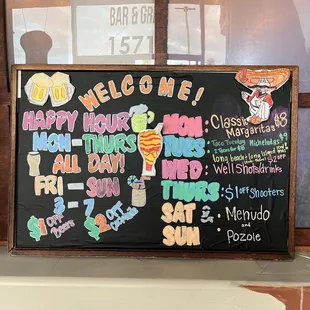 BAR & GR
1571
WELCOME!
HAPPY HOUR
MON-THURS
ALL DAY!
FRI - SUN
3 - 7
$1 OFF Beers
$2 OFF Cocktails
MON: Classic Margaritas $8
TUES: Taco Tuesday Micheladas $9
long beach + long island
WED: Well Shots/drinks $2 OFF
THURS: $1 OFF Shooters
SAT & SUN: Menudo and Pozole